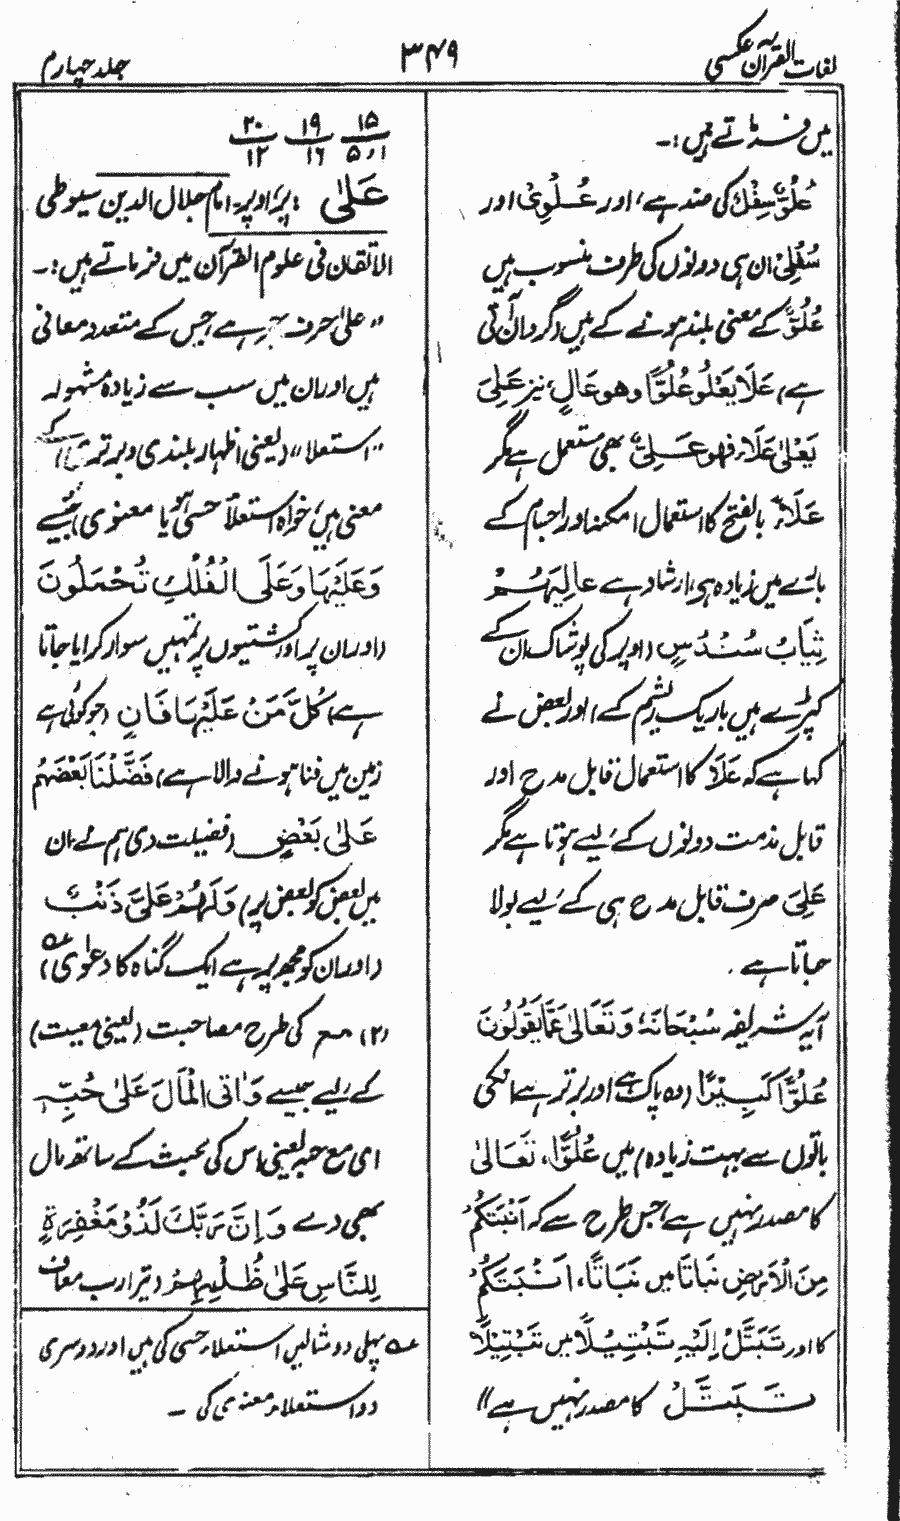 لغات القرآن عکسی
۳۴۹
جلد چہارم
میں فرماتے ہیں:۔
عُلُوٌّ سِفْلٌ کی ضد ہے، اور عُلْوِیٌّ اور
سُفْلِیٌّ ان ہی دونوں کی طرف منسوب ہیں
عُلُوٌّ کے معنی بلند ہونے کے ہیں (گردان آتی
ہے) عَلَا یَعْلُوْ عُلُوًّا وهو عَالٍ، نیز عَلِیَ
یَعْلیٰ عَلَاءً فهو عَلِیٌّ بھی مستعمل ہے مگر
عَلَاءٌ بالفتح کا استعمال امکنہ اور اجسام کے
بارے میں زیادہ ہی ارشاد ہے عالِیَہُمْ
ثِیَابُ سُنْدُسٍ (اوپر کی پوشاک ان کے
کپڑے ہیں باریک ریشم کے) اور بعض نے
کہا ہے کہ عَلَا کا استعمال قابل مدح اور
قابل مذمت دونوں کے لیے ہوتا ہے مگر
عَلِیَ صرف قابل مدح ہی کے لیے بولا
جاتا ہے۔
آیہ شریفہ سُبْحَانَهٗ وَتَعَالیٰ عَمَّا یَقُوْلُوْنَ
عُلُوًّا کَبِیْرًا (وہ پاک ہے اور برتر ہے انکی
باتوں سے بہت زیادہ) میں عُلُوًّا، تَعَالیٰ
کا مصدر نہیں ہے، جس طرح سے کہ اَنْبَتَکُمْ
مِنَ الْاَرْضِ نَبَاتًا میں نَبَاتًا، اَنْبَتَکُمْ
کا اور تَبَتَّلْ اِلَیْهِ تَبْتِیْلًا میں تَبْتِیْلًا
تَبَتَّلْ کا مصدر نہیں ہے"
۱۵ ۱۹ ۲۰
۱ر۵ ۱۶ ۱۲
عَلٰی : پر، اوپر۔ امام جلال الدین سیوطی
الاتقان فی علوم القرآن میں فرماتے ہیں:۔
"علیٰ حرف جر ہے جس کے متعدد معانی
ہیں اور ان میں سب سے زیادہ مشہور
"استعلا" (یعنی اظہار بلندی و برتری) کے
معنی ہیں، خواہ استعلاً حسی ہو یا معنوی) جیسے
وَعَلَیْہَا وَعَلَی الْفُلْكِ تُحْمَلُوْنَ
(اور ان پر اور کشتیوں پر تمہیں سوار کرایا جاتا
ہے) کُلُّ مَنْ عَلَیْہَا فَانٍ (جو کوئی ہے
زمین میں فنا ہونے والا ہے) فَضَّلْنَا بَعْضَہُمْ
عَلیٰ بَعْضٍ (فضیلت دی ہم نے ان
میں بعض کو بعض پر) وَلَہُمْ عَلَیَّ ذَنْبٌ
(اور ان کو مجھ پر ہے ایک گناہ کا دعوٰی) ؎
(۲) مع کی طرح مصاحبت (یعنی معیت)
کے لیے جیسے وَاٰتَی الْمَالَ عَلیٰ حُبِّہٖ
ای مع حبہ یعنی اس کی محبت کے ساتھ مال
بھی دے وَاِنَّ رَبَّكَ لَذُوْ مَغْفِرَةٍ
لِلنَّاسِ عَلیٰ ظُلْمِہِمْ (تیرا رب معاف
؎ پہلی دو مثالیں استعلاء حسی کی ہیں اور دوسری
دو استعلاء معنوی کی ۔